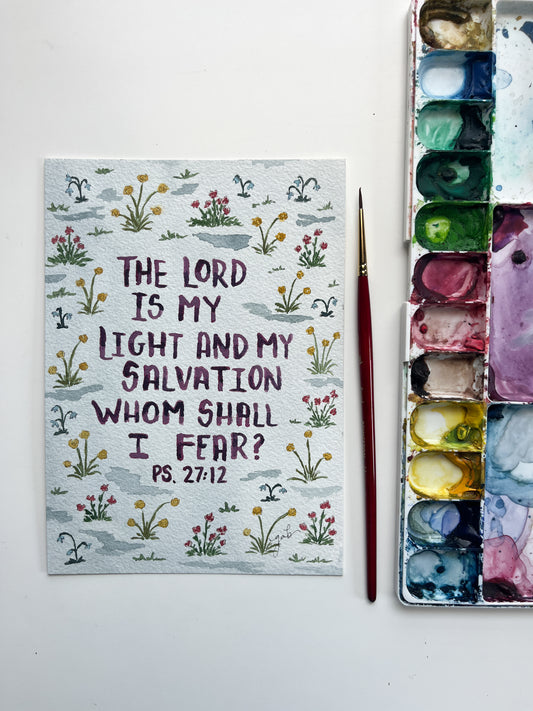 THE LORD
IS MY
LIGHT AND MY
SALVATION
WHOM SHALL
I FEAR?
PS. 27:12
gab